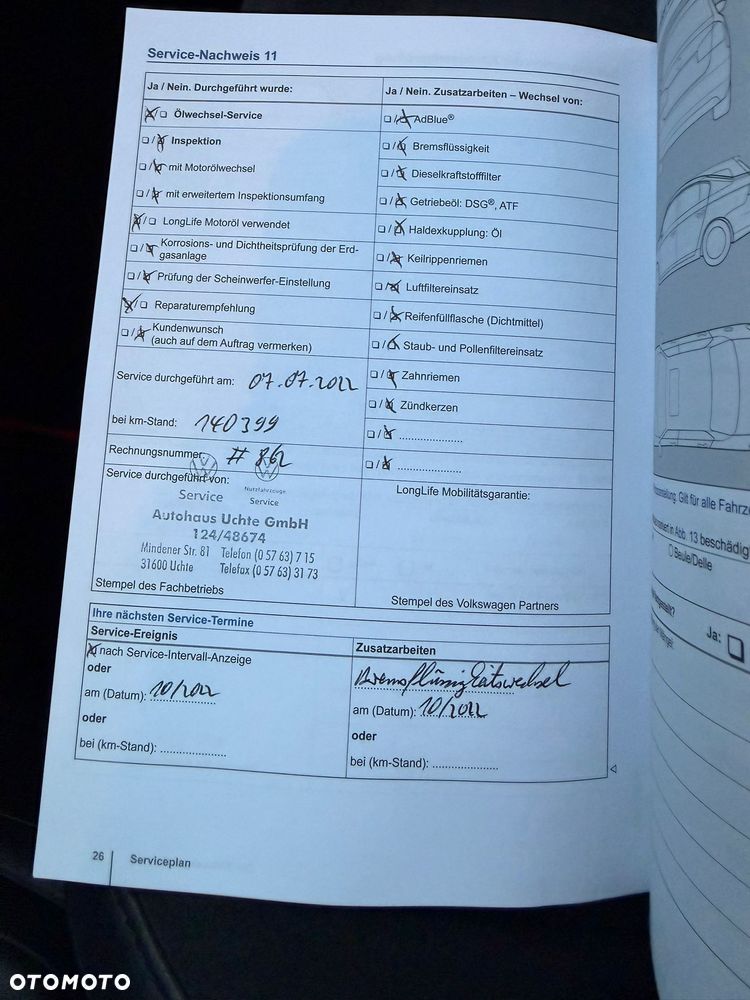 Service-Nachweis 11
Ja / Nein. Durchgeführt wurde:
Ölwechsel-Service
Inspektion
mit Motorölwechsel
mit erweitertem Inspektionsumfang
LongLife Motoröl verwendet
Korrosions- und Dichtheitsprüfung der Erd-
gasanlage
Prüfung der Scheinwerfer-Einstellung
Reparaturempfehlung
Kundenwunsch
(auch auf dem Auftrag vermerken)
Service durchgeführt am: 07.07.2022
bei km-Stand: 140399
Rechnungsnummer: # 862
Service durchgeführt von:
Service
Nutzfahrzeuge
Service
Autohaus Uchte GmbH
124/48674
Mindener Str. 81 Telefon (0 57 63) 7 15
31600 Uchte Telefax (0 57 63) 31 73
Stempel des Fachbetriebs
Ja / Nein. Zusatzarbeiten – Wechsel von:
AdBlue®
Bremsflüssigkeit
Dieselkraftstofffilter
Getriebeöl: DSG®, ATF
Haldexkupplung: Öl
Keilrippenriemen
Luftfiltereinsatz
Reifenfüllflasche (Dichtmittel)
Staub- und Pollenfiltereinsatz
Zahnriemen
Zündkerzen
LongLife Mobilitätsgarantie:
Stempel des Volkswagen Partners
Ihre nächsten Service-Termine
Service-Ereignis
nach Service-Intervall-Anzeige
oder
am (Datum): 10/2022
oder
bei (km-Stand): ....................
Zusatzarbeiten
Bremsflüssigkeitswechsel
am (Datum): 10/2022
oder
bei (km-Stand): ....................
26 Serviceplan
Gilt für alle Fahrze
in Abb. 13 beschädig
Beule/Delle
Ja:
OTOMOTO